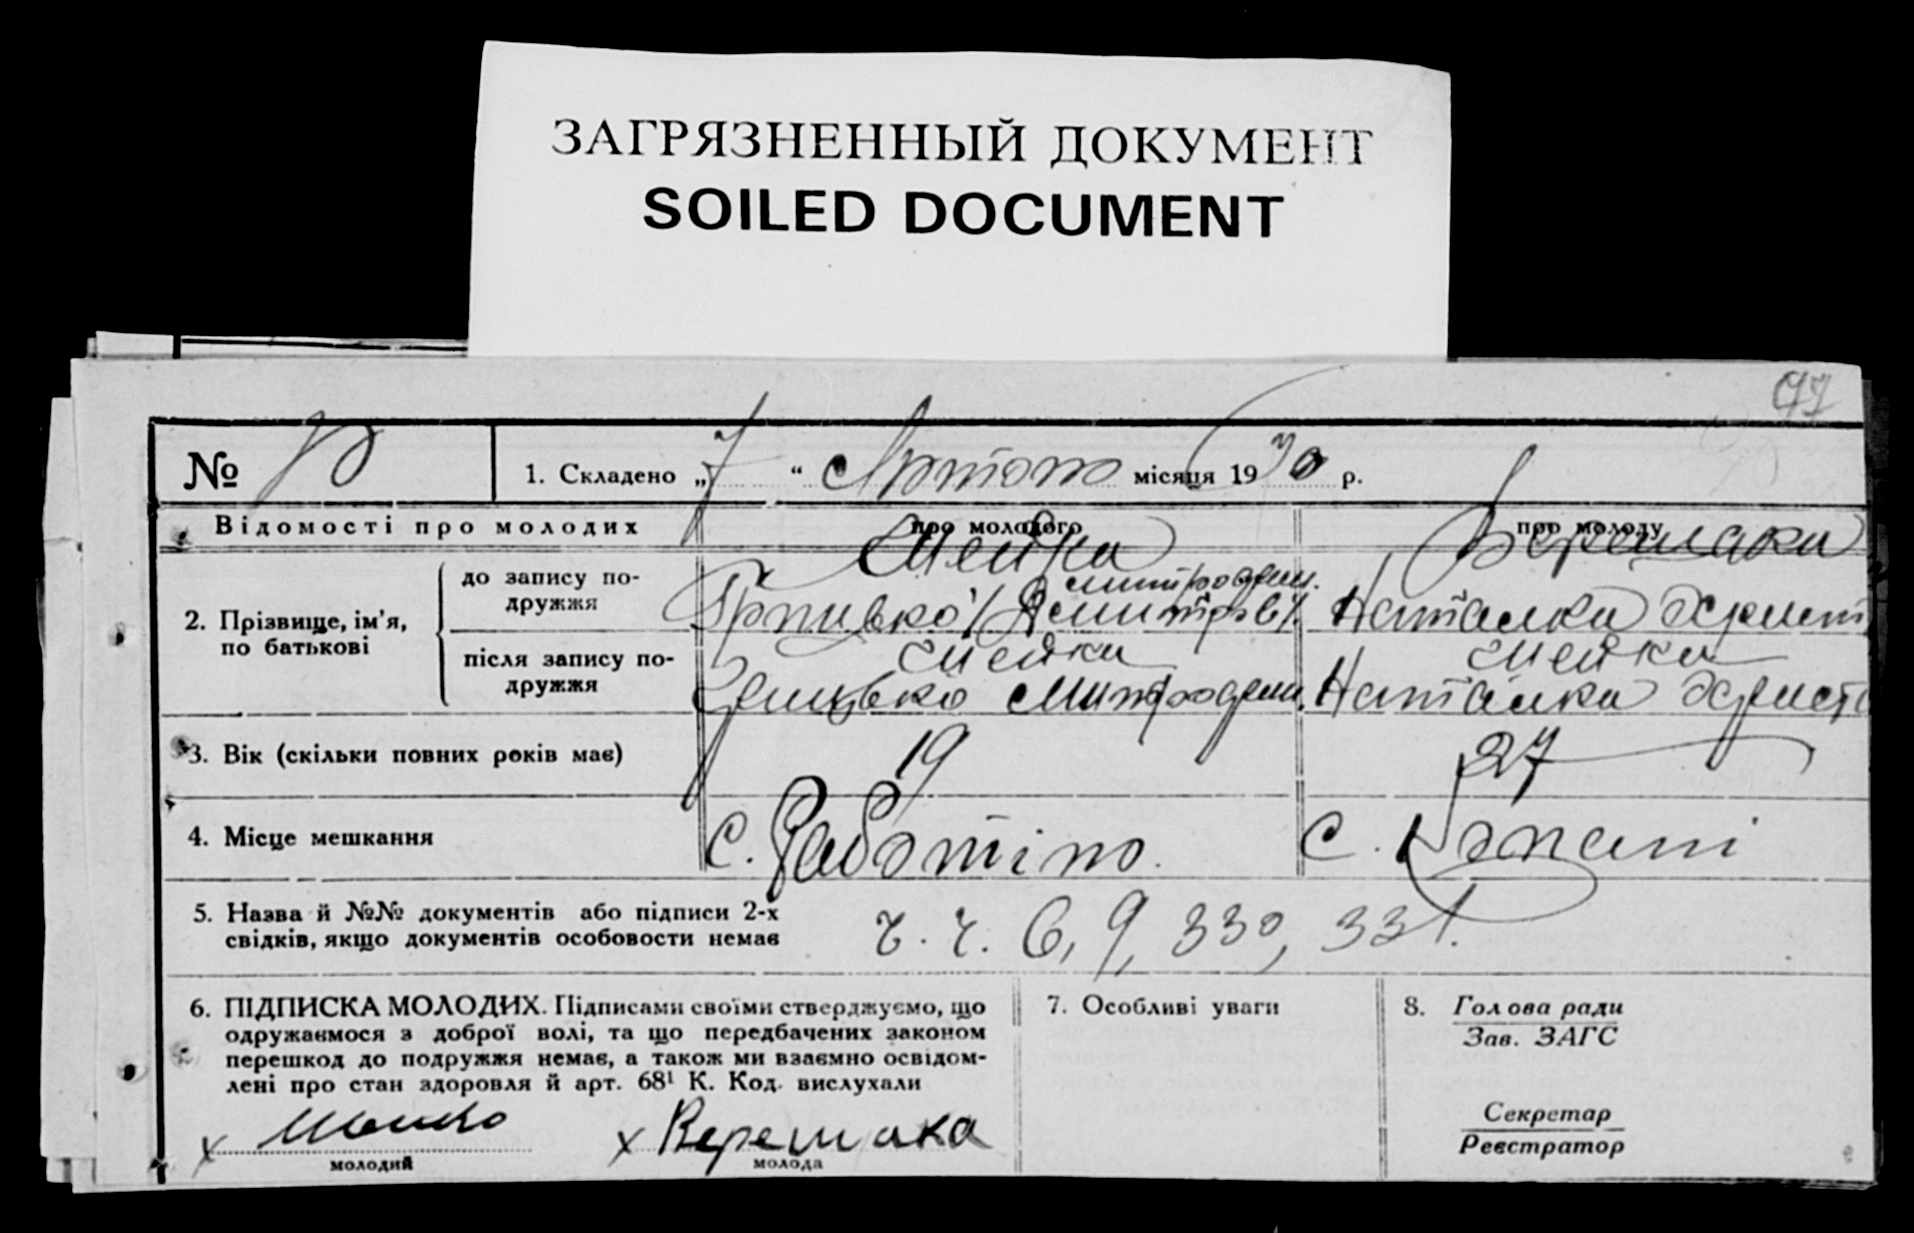 ЗАГРЯЗНЕННЫЙ ДОКУМЕНТ
SOILED DOCUMENT
97
№
1. Складено „7“ Лютого місяця 1930 р.
Відомості про молодих
про молодого
про молоду
2. Прізвище, ім’я, по батькові
до запису подружжя
Грицько
Наталка
після запису подружжя
Грицько Митрофан.
Наталка
3. Вік (скільки повних років має)
19
27
4. Місце мешкання
с.
с. Копані
5. Назва й №№ документів або підписи 2-х
свідків, якщо документів особовости немає
ч. ч. 6, 9, 330, 331.
6. ПІДПИСКА МОЛОДИХ. Підписами своїми стверджуємо, що
одружаємося з доброї волі, та що передбачених законом
перешкод до подружжя немає, а також ми взаємно освідом-
лені про стан здоровля й арт. 68¹ К. Код. вислухали
х
молодий
х Верещака
молода
7. Особливі уваги
8. Голова ради
Зав. ЗАГС
Секретар
Реєстратор